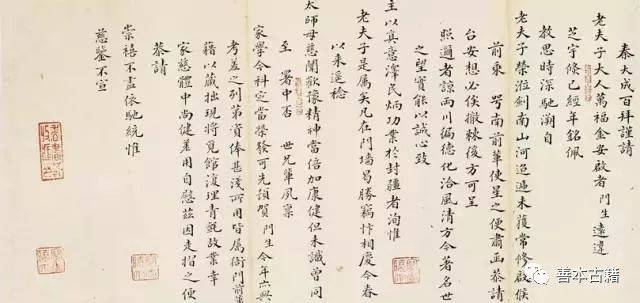 秦大成百拜謹請
老夫子大人萬福金安啟者門生遠違
芝宇條已經年銘佩
教思時深馳溯自
老夫子榮涖劍南山河迢遞未獲常修啟候
前東粤南前輩使星之便肅函恭請
台安想必俟撤棘後方可呈
照邇者諒兩川徧德化洽風清方今著名世
之望實能以誠心致
主以真意澤民炳功業於封疆者洵惟
老夫子是屬矣凡在門墻曷勝竊忭相慶今春
以來遥稔
太師母慈闈歡豫精神當倍加康健但未識曾同
至署中否世兄輩夙稟
家學今科定當榮發可先頌賀門生今年六與
考差之列第資俸甚淺所用皆属衙門前輩
籍以藏拙現將覓館復理青氈故業幸
家慈體中尚健差用自慰兹因走摺之便
恭請
崇禧不盡依馳統惟
慈鑒不宣
善本古籍